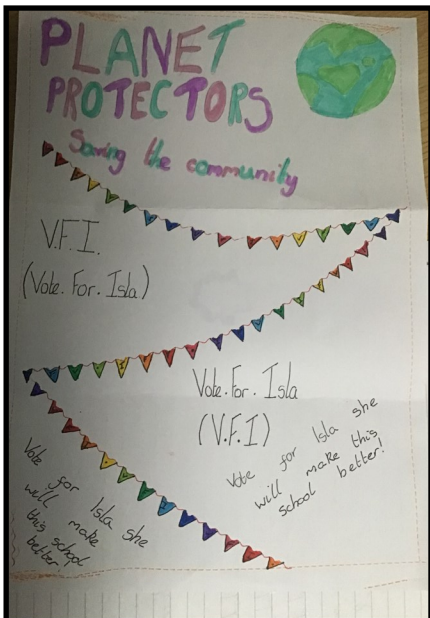 PLANET
PROTECTORS
Saving the community
V.F.I.
(Vote.For.Isla)
Vote.For.Isla
(V.F.I)
Vote for Isla she
will make this
school better!
Vote for Isla she
will make
this school
better!